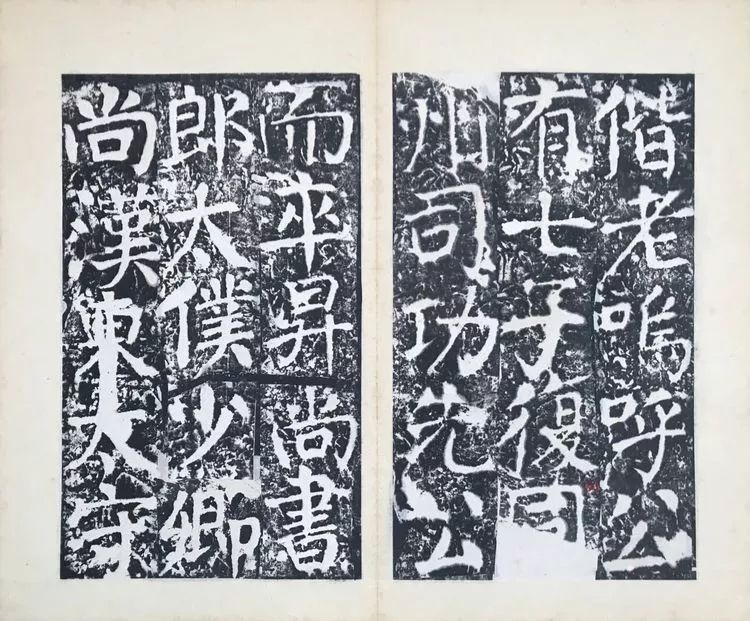 偕老嗚呼公
有七子復同
州司功先公
而卒昇尚書
郎太僕少卿
尚漢東太守